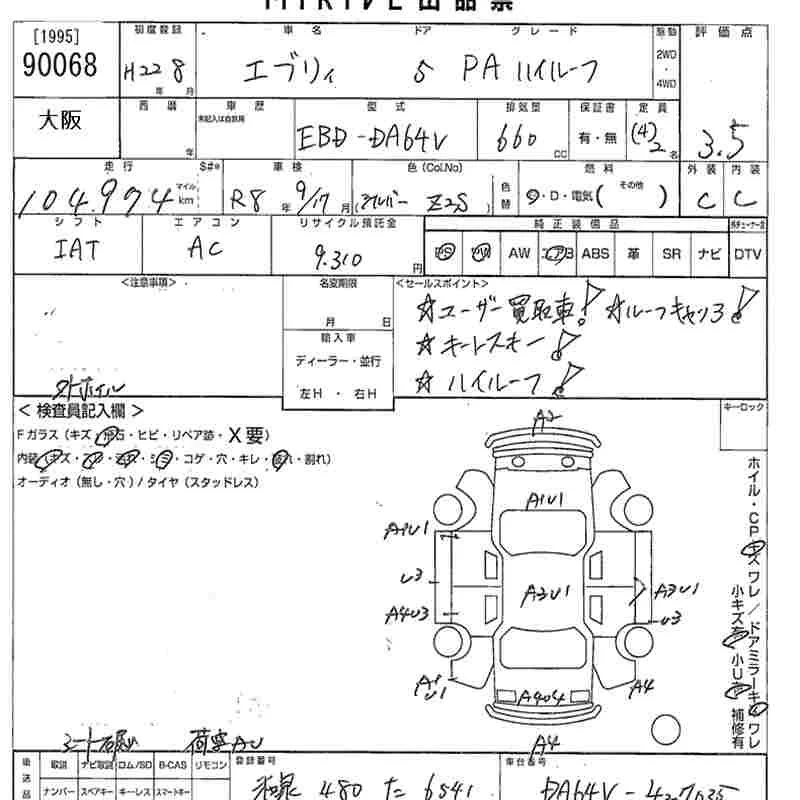 MIRIVE出品票
[1995] 初度登録 車名 ドア グレード 駆動 評価点
90068 H22 8 エブリィ 5 PA ハイルーフ 2WD・4WD 3.5
年 月
大阪 西暦 車歴 型式 排気量 保証書 定員
未記入は自家用 EBD-DA64V 660 有・無 (4)2
年 CC 名
走行 S#* 車検 色(Col.No) 燃料 外装 内装
104.974 マイル km R8年 9/17月 (シルバー Z2S) 色替 G・D・電気( その他 ) C C
シフト エアコン リサイクル預託金 純正装備品
IAT AC 9.310円 PS PW AW エアB ABS 革 SR ナビ DTV
<注意事項> 名変期限 <セールスポイント>
月 日 ☆ユーザー買取車! ☆ルーフキャリア!
輸入車 ☆キーレスキー!
ディーラー・並行 ☆ハイルーフ!
左H・右H
<検査員記入欄> キーロック
Fガラス(キズ・飛石・ヒビ・リペア跡・X要)
内装(キズ・コゲ・穴・キレ・破れ・割れ)
オーディオ(無し・穴)/タイヤ(スタッドレス)
A2
A1U1
A1U1
U3
A3U1
A3U1
A4U3
U3
A1U1
A4
A4
ホイル・CPキズワレ/ドアミラーキズワレ
小キズ有 小U有 補修有
後送品 取説 ナビ取説 ロム/SD B-CAS リモコン 登録番号 車台番号
ナンバー スペアキー キーレス スマートキー 和泉 480 た 6541 DA64V-